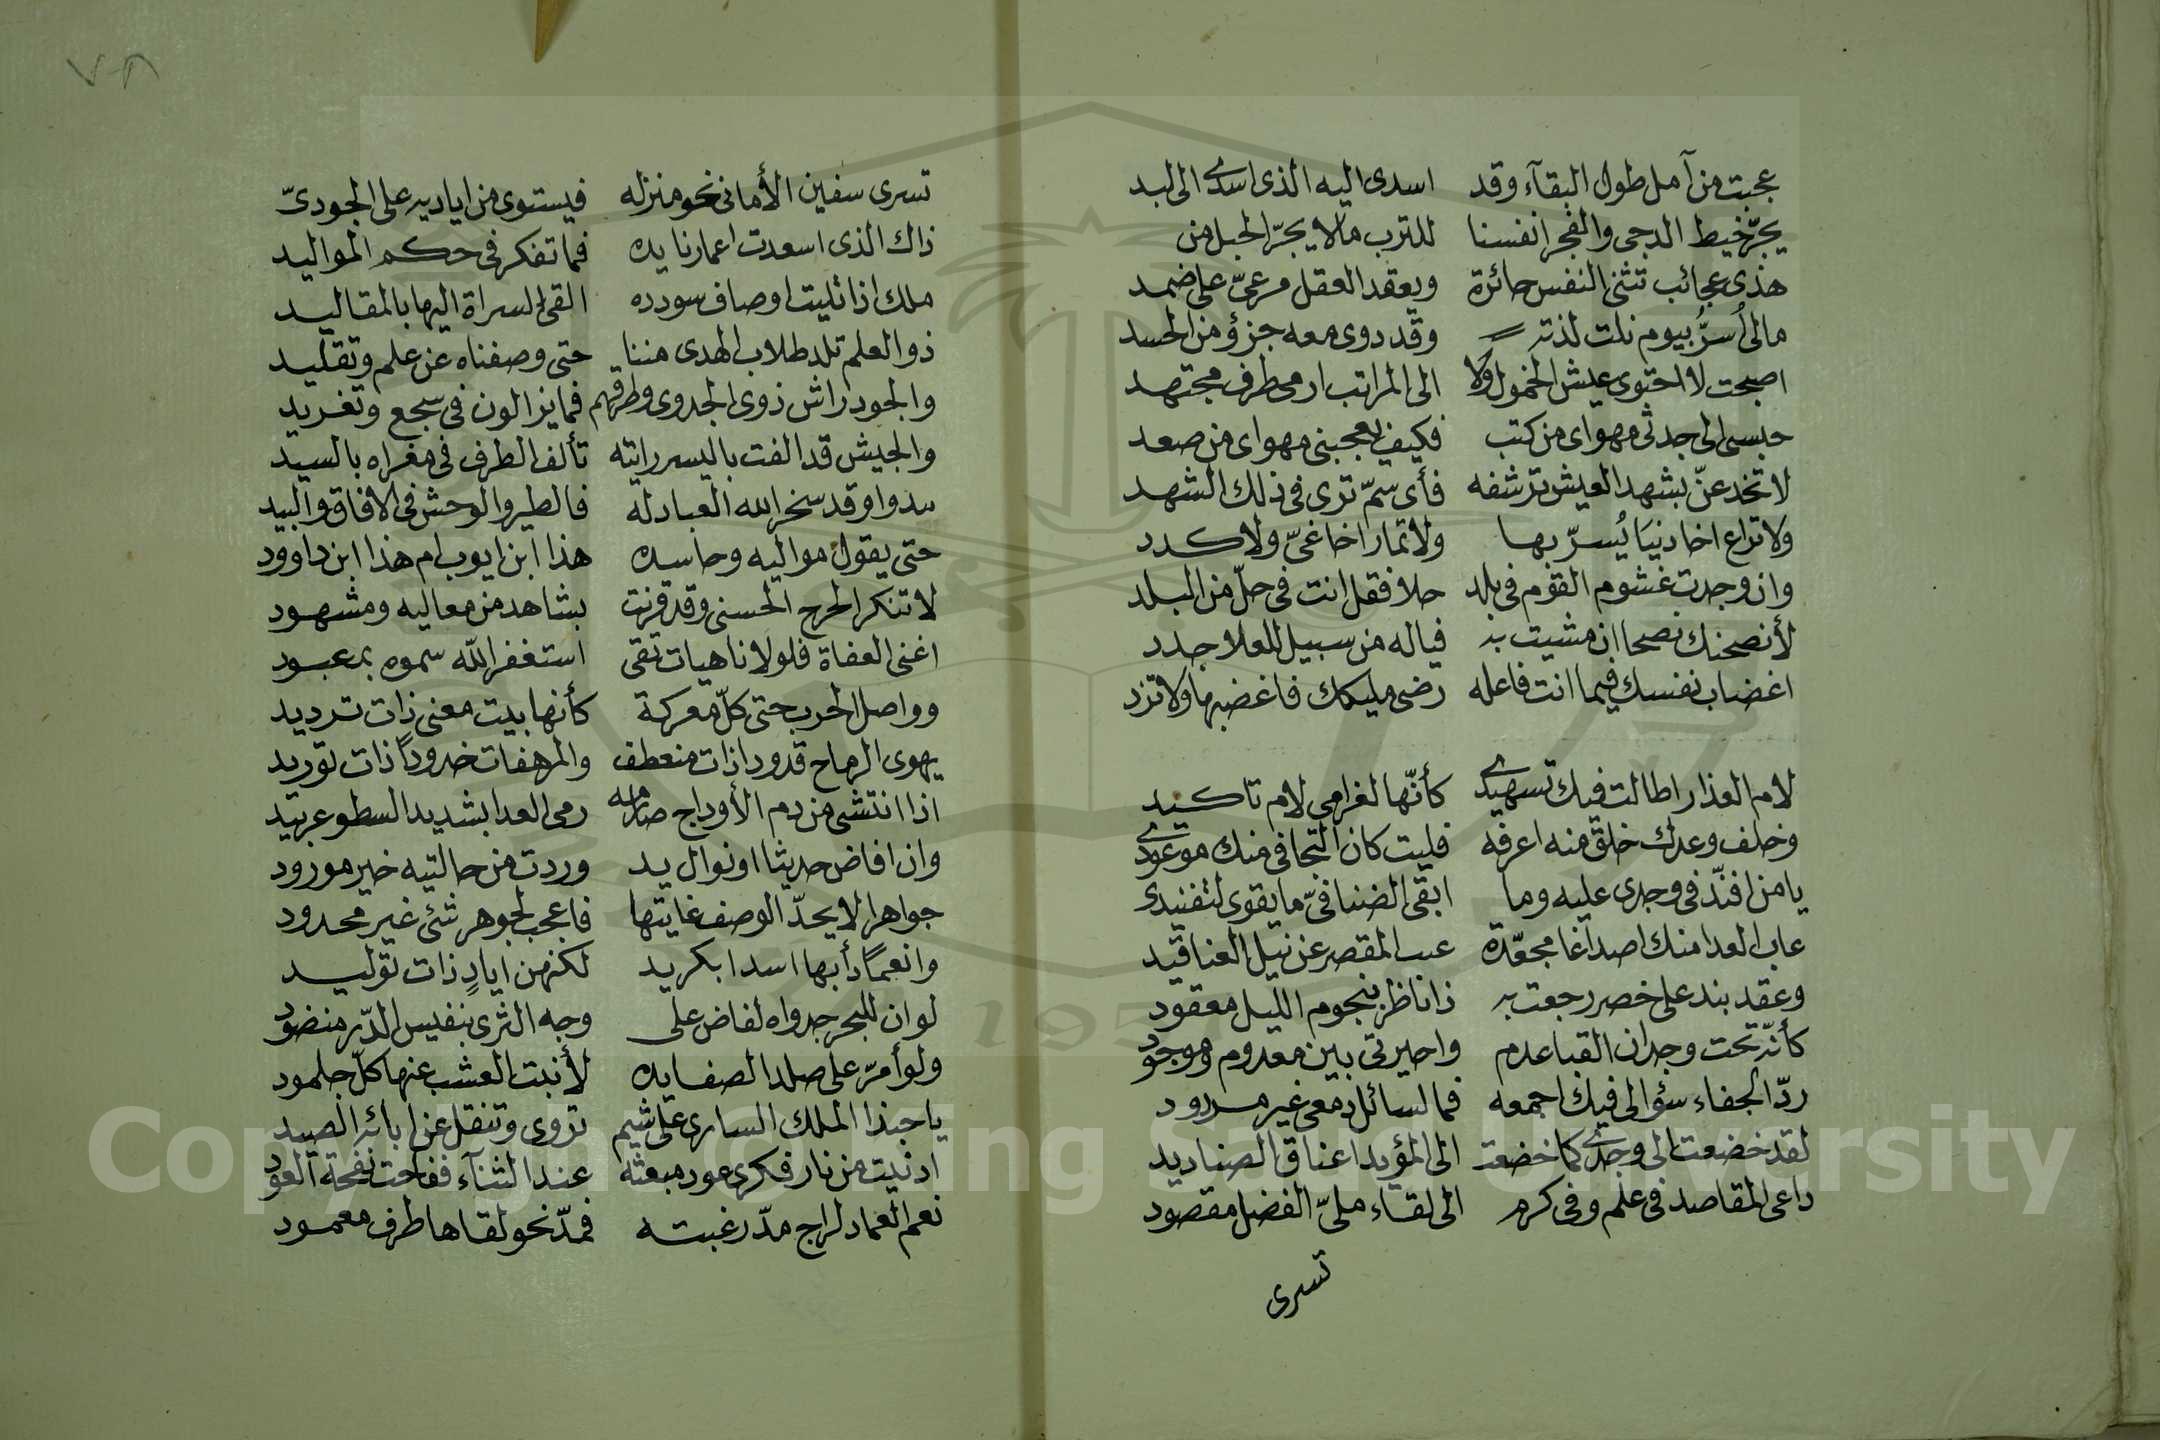 عجبت من آمل طول البقآء وقد اسدى اليه الذى اسدى الى لبد
يجرّ خيط الدجى والفجر انفسنا للترب مالا يجرّ الحبل من
هذى عجائب تثنى النفس حائرة ويعقد العقل مرعىّ على ضمد
مالى أُسَرُّ بيوم نلت لذته وقد دوى معه جزؤ من الحسد
اصبحت لا احتوى عيش الخمول ولا الى المراتب ارمى طرف مجتهد
حبسى الى جدثى مهواى من كتب فكيف يعجبنى مهواى من صعد
لا تخدعنّ بشهد العيش ترشفه فأى سمّ ترى فى ذلك الشهد
ولا تراع اخا دنيا يُسرّ بها ولا تمار اخا غىّ ولا كدد
وان وجدت غشوم القوم فى بلد حلا فقل انت فى حلّ من البلد
لأنصحنك نصحا ان مشيت به فياله من سبيل للعلا جدد
اغضاب نفسك فيما انت فاعله رضى مليكك فاغضبها ولا تزد
لام العذار اطالت فيك تسهيدى كأنّها لغرامى لام تاكيد
وخلف وعدك خلق منه اعرفه فليت كان التجافى منك موعودى
يا من افنّد فى وجدى عليه وما ابقى الضنا فىّ ما يقوى لتفنيدى
عاب العدا منك اصداغا مجعّدة عيب المقصر عن نيل العناقيد
وعقد بند على خصر رجعت به ذا ناظر بنجوم الليل معقود
كأنّه تحت وجدان القبا عدم واحيرتى بين معدوم وموجود
ردّ الجفاء سؤالى فيك اجمعه فما لسائل دمعى غير مردود
لقد خضعت الى وجدى كما خضعت الى المؤيد اعناق الصناديد
داعى المقاصد فى علم وفى كرم الى لقاء ملىّ الفضل مقصود
تسرى
٧٨
تسرى سفين الأمانى نحو منزله فيستوى من اياديه على الجودىّ
ذاك الذى اسعدت اعمارنا يده فما تفكر فى حكم المواليد
ملك اذا تليت اوصاف سودده القى السراة اليها بالمقاليد
ذو العلم تلد طلاب الهدى مننا حتى وصفناه عن علم وتقليد
والجود راش ذوى الجدوى وطرقهم فما يزالون فى سجع وتغريد
والجيش قد الفت باليسر رايته تألف الطرف فى مغراه بالسيد
بيدوا وقد سخر الله العباد له فالطير والوحش فى الافاق والبيد
حتى يقول مواليه وحاسده هذا ابن ايوب ام هذا ابن داوود
لا تنكر الحرح الحسنى وقد قرنت بشاهد من معاليه ومشهود
اغنى العفاة فلولا ناهيات تقى استغفر اللّه سموه بمعبود
وواصل الحرب حتى كلّ معركة كأنها بيت معنى ذات ترديد
يهوى الرماح قدودا ذات منعطف والمرهفات خدوداً ذات توريد
اذا انتشى من دم الأوداج صارمه رمى العدا بشديد السطو عربيد
وان افاض حديثا او نوال يد وردت من حالتيه خير مورود
جواهرا لا يحدّ الوصف غايتها فاعجب لجوهر شئ غير محدود
وانعماً دأبها اسدا بكر يد لكنهن ايادٍ ذات توليد
لو ان للبحر جدواه لفاض على وجه الثرى بنفيس الدّر منضود
ولو أمرّ على صلد الصفا يده لأنبت العشب عنها كلّ جلمود
يا حبذا الملك السارى على شيم تروى وتنقل عن ابائه الصيد
ادنيت من نار فكرى عود مبعثه عند الثنآء ففاحت نفحة العود
نعم العماد لراج مدّ رغبته فمدّ نحو لقاها طرف معمود
Copyright © King Saud University
1957